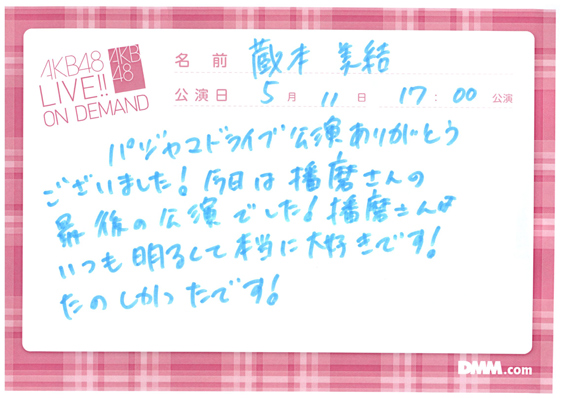 AKB48
LIVE!!
ON DEMAND
AKB
48
名 前 蔵本 美結
公演日 5月 11日 17:00 公演
パジャマドライブ公演ありがとう
ございました!今日は播磨さんの
最後の公演でした!播磨さんは
いつも明るくて本当に大好きです!
たのしかったです!
DMM.com